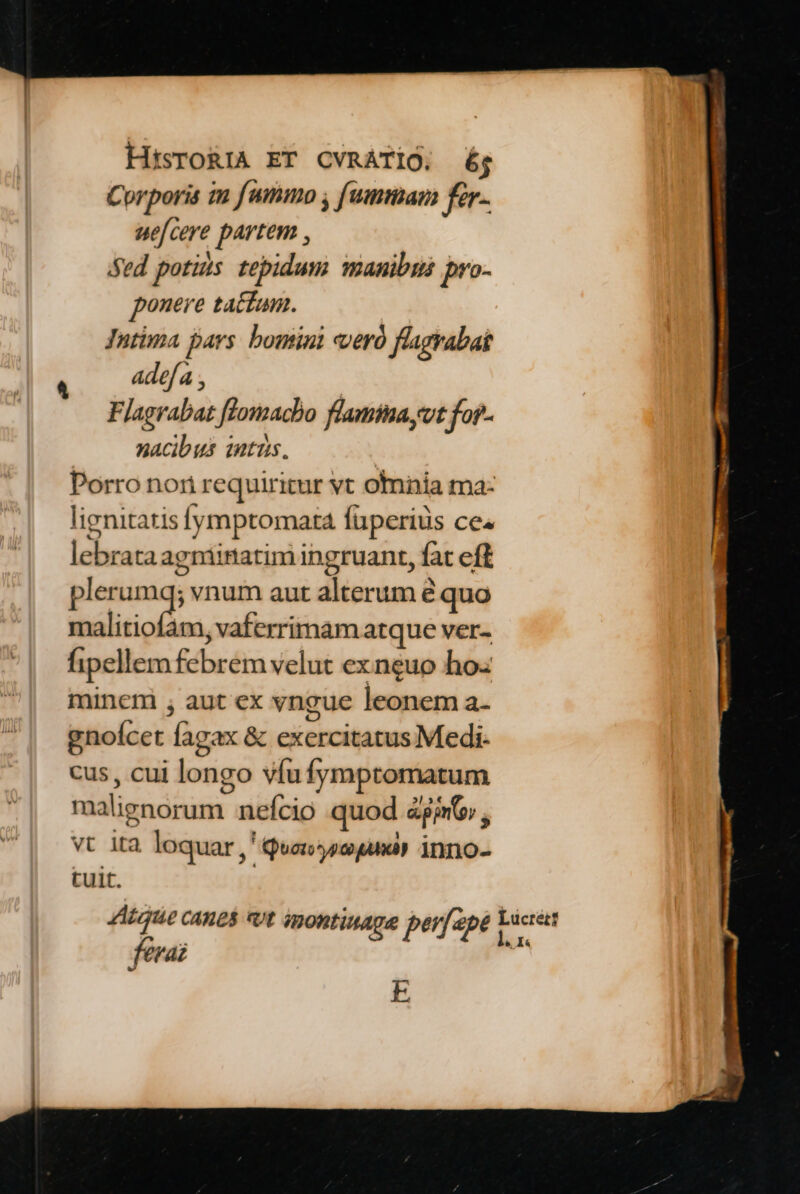 HISTORIA ET CVRATIO. 65
Corporis in ſummo, ſummam fer-
ueſcere partem,
Sed potiùs tepidum manibus pro-
ponere tactum.
Intima pars homini verò flagrabat
adeſa,
Flagrabat ſtomacho flamma, vt for-
nacibus intùs.
Porro non requiritur vt omnia ma-
lignitatis ſymptomata ſuperiùs ce-
lebrata agminatim ingruant, ſat eſt
plerumq; vnum aut alterum è quo
malitioſam, vaferrimam atque ver-
ſipellem febrem velut ex neuo ho-
minem, aut ex vngue leonem a-
gnoſcet ſagax & exercitatus Medi-
cus, cui longo vſu ſymptomatum
malignorum neſcio quod ἄῤῥητον,
vt ita loquar, φυσιογνωμικὸν inno-
tuit.
Atque canes vt montiuagæ perſæpe
ferai
Lucret:
l. 1.
E